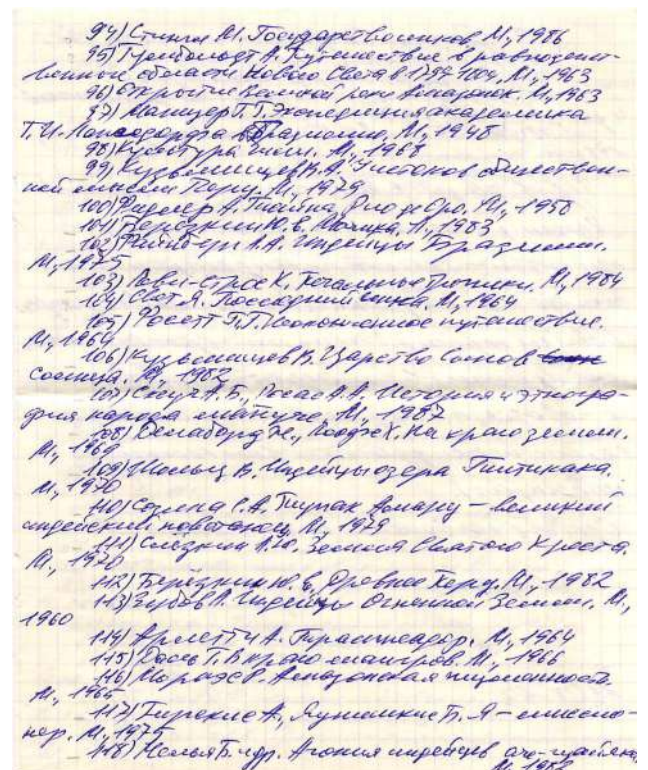 94) Стингл М. Государство инков М., 1986
95) Гумбольдт А. Путешествие в равноденст-
венные области Нового Света в 1799-1804, М., 1963
96) Открытие великой реки Амазонок. М., 1963
97) Манизер Г.Г. Экспедиция академика
Г.И. Лангсдорфа в Бразилию, М., 1948
98) Культура Чили. М., 1968
99) Кузьмищев В.А. У истоков обществен-
ной мысли Перу. М., 1979
100) Фидлер А. Тайна Рио де Оро. М., 1958
101) Берёзкин Ю.Е. Мочика. Л., 1983
102) Файнберг Л.А. Индейцы Бразилии.
М., 1975
103) Леви-Строс К. Печальные тропики. М., 1984
104) Свет Я. Последний инка. М., 1964
105) Фосетт П.Г. Неоконченное путешествие.
М., 1969
106) Кузьмищев В. Царство Сынов
солнца. М., 1982
107) Сауч А.Б., А.А. История и этногра-
фия народа мапуче. М., 1987
108) Ж., Х. На краю земли.
М., 1969
109) В. Индейцы озера Титикака.
М., 1970
110) Созина С.А. Тупак Амару – великий
индейский повстанец, М., 1979
111) Слёзкин Л.Ю. Земля Святого Креста.
М., 1970
112) Берёзкин Ю.Е. Древнее Перу. М., 1982
113) Зубов А. Индейцы Огненной Земли. М.,
1960
114) А. М., 1964
115) Г. В краю М., 1966
116) Р. Амазонская
М., 1965
117) А., Б. Я – миссио-
нер. М., 1975
118) Мелья Б. и др. Агония индейцев аче-гуайяки,
М., 1982